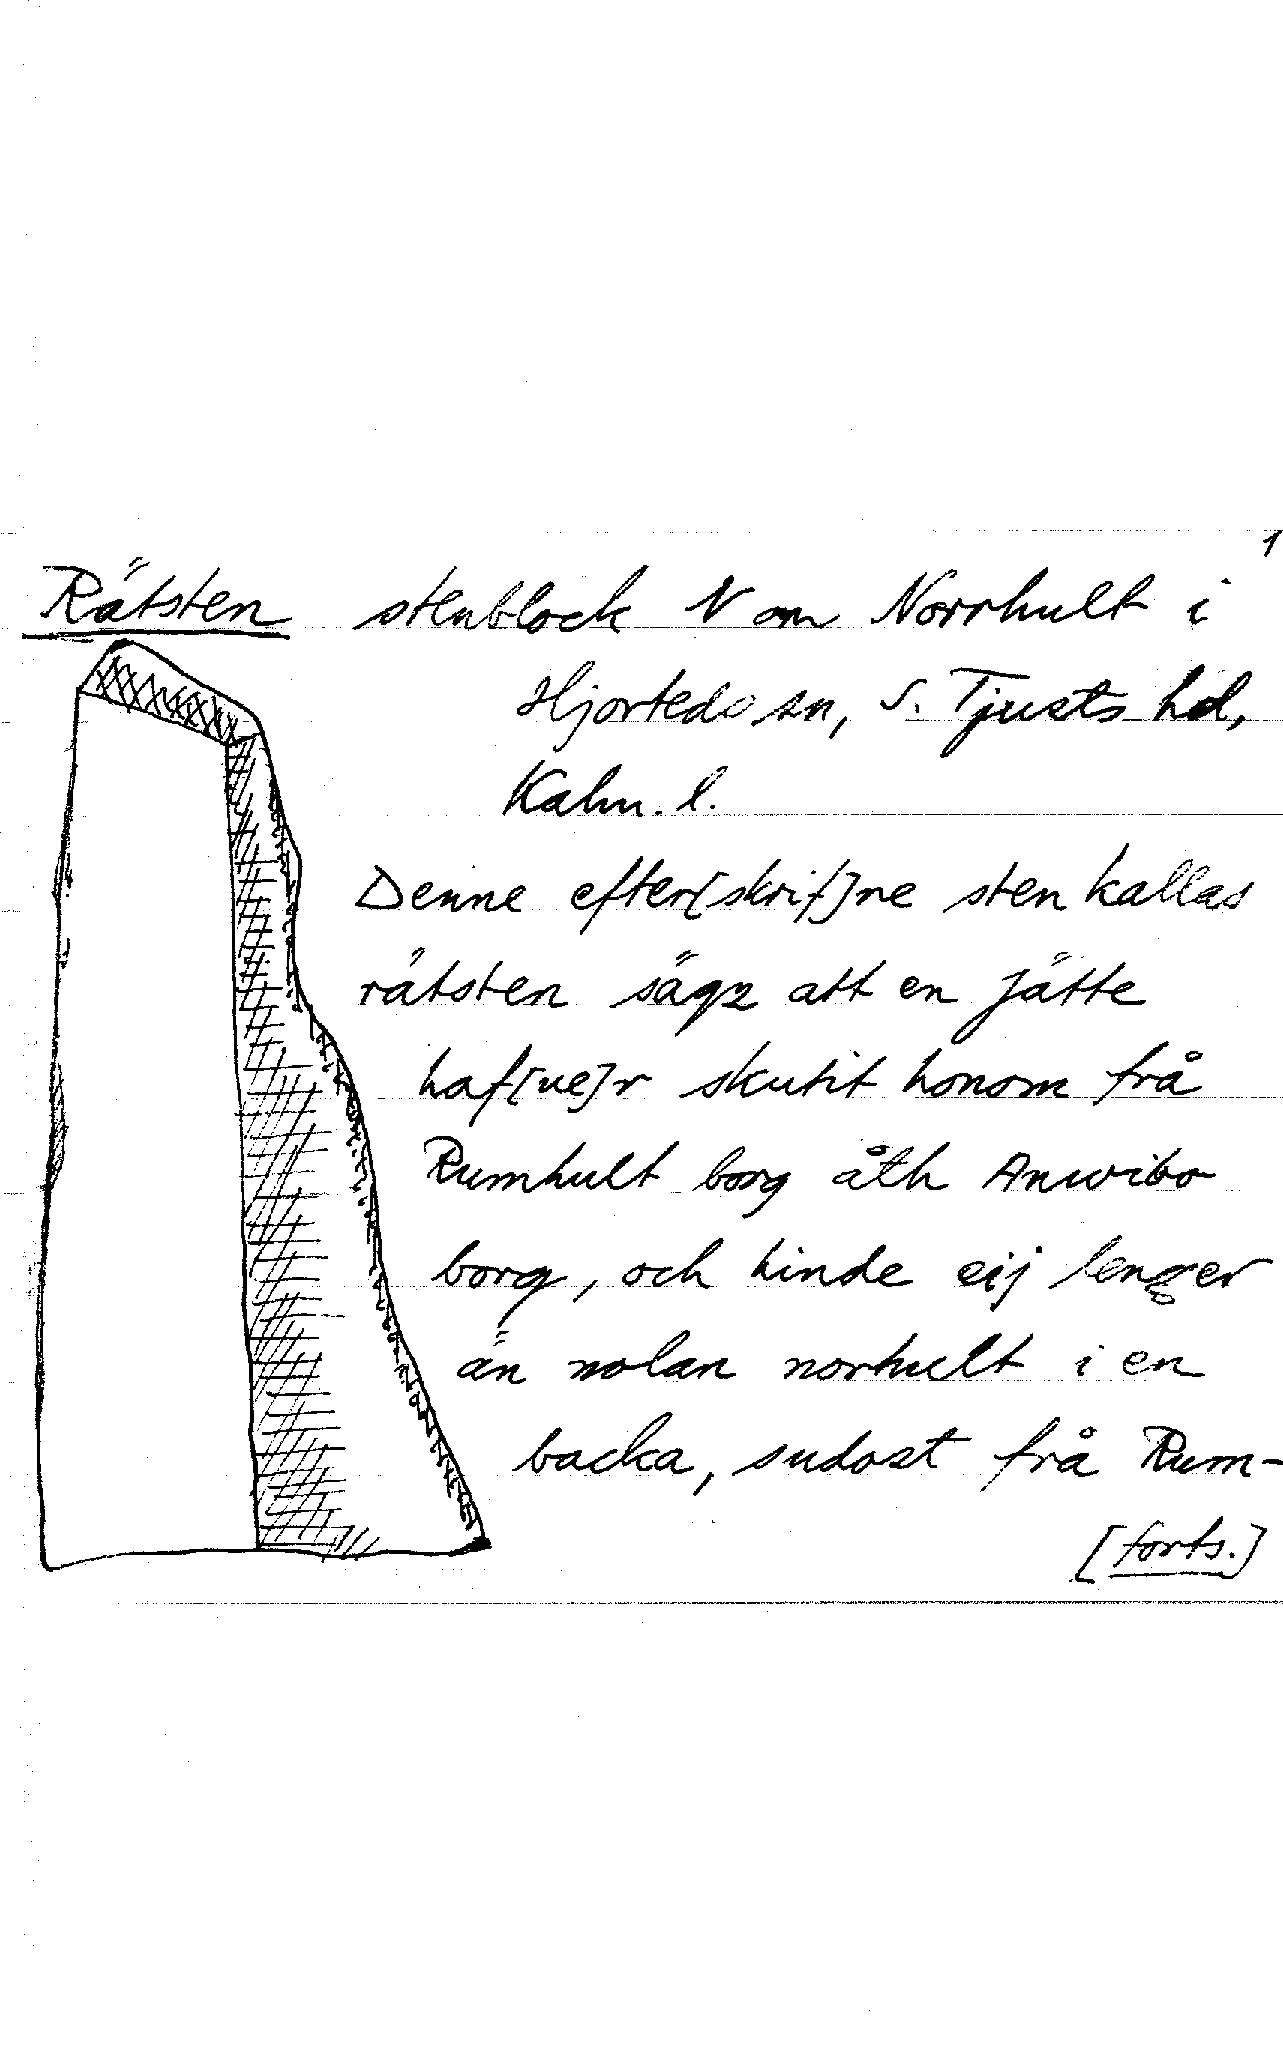 1
Rätsten stenblock N om Norrhult i
Hjorteds sn, S. Tjusts hd,
Kalm. l.
Denne efter[skrif]ne sten kallas
rätsten sägz att en jätte
haf[ue]r skutit honom frå
Rumhult borg åth Anwibo
borg, och hinde eij lenger
än nolan norhult i en
backa, sudost frå Rum-
[forts.]